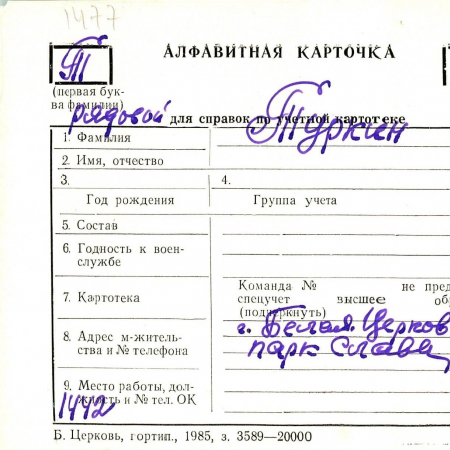 1477
АЛФАВИТНАЯ КАРТОЧКА
Т
(первая бук-
ва фамилии)
рядовой
для справок по учетной картотеке
1. Фамилия
Туркин
2. Имя, отчество
3.
4.
Год рождения
Группа учета
5. Состав
6. Годность к воен-
службе
7. Картотека
Команда № не пред
спецучет высшее об
(подчеркнуть)
8. Адрес м-житель-
ства и № телефона
г. Белая Церков
парк Слава
9. Место работы, дол-
жность и № тел. ОК
1442
Б. Церковь, гортип., 1985, з. 3589—20000